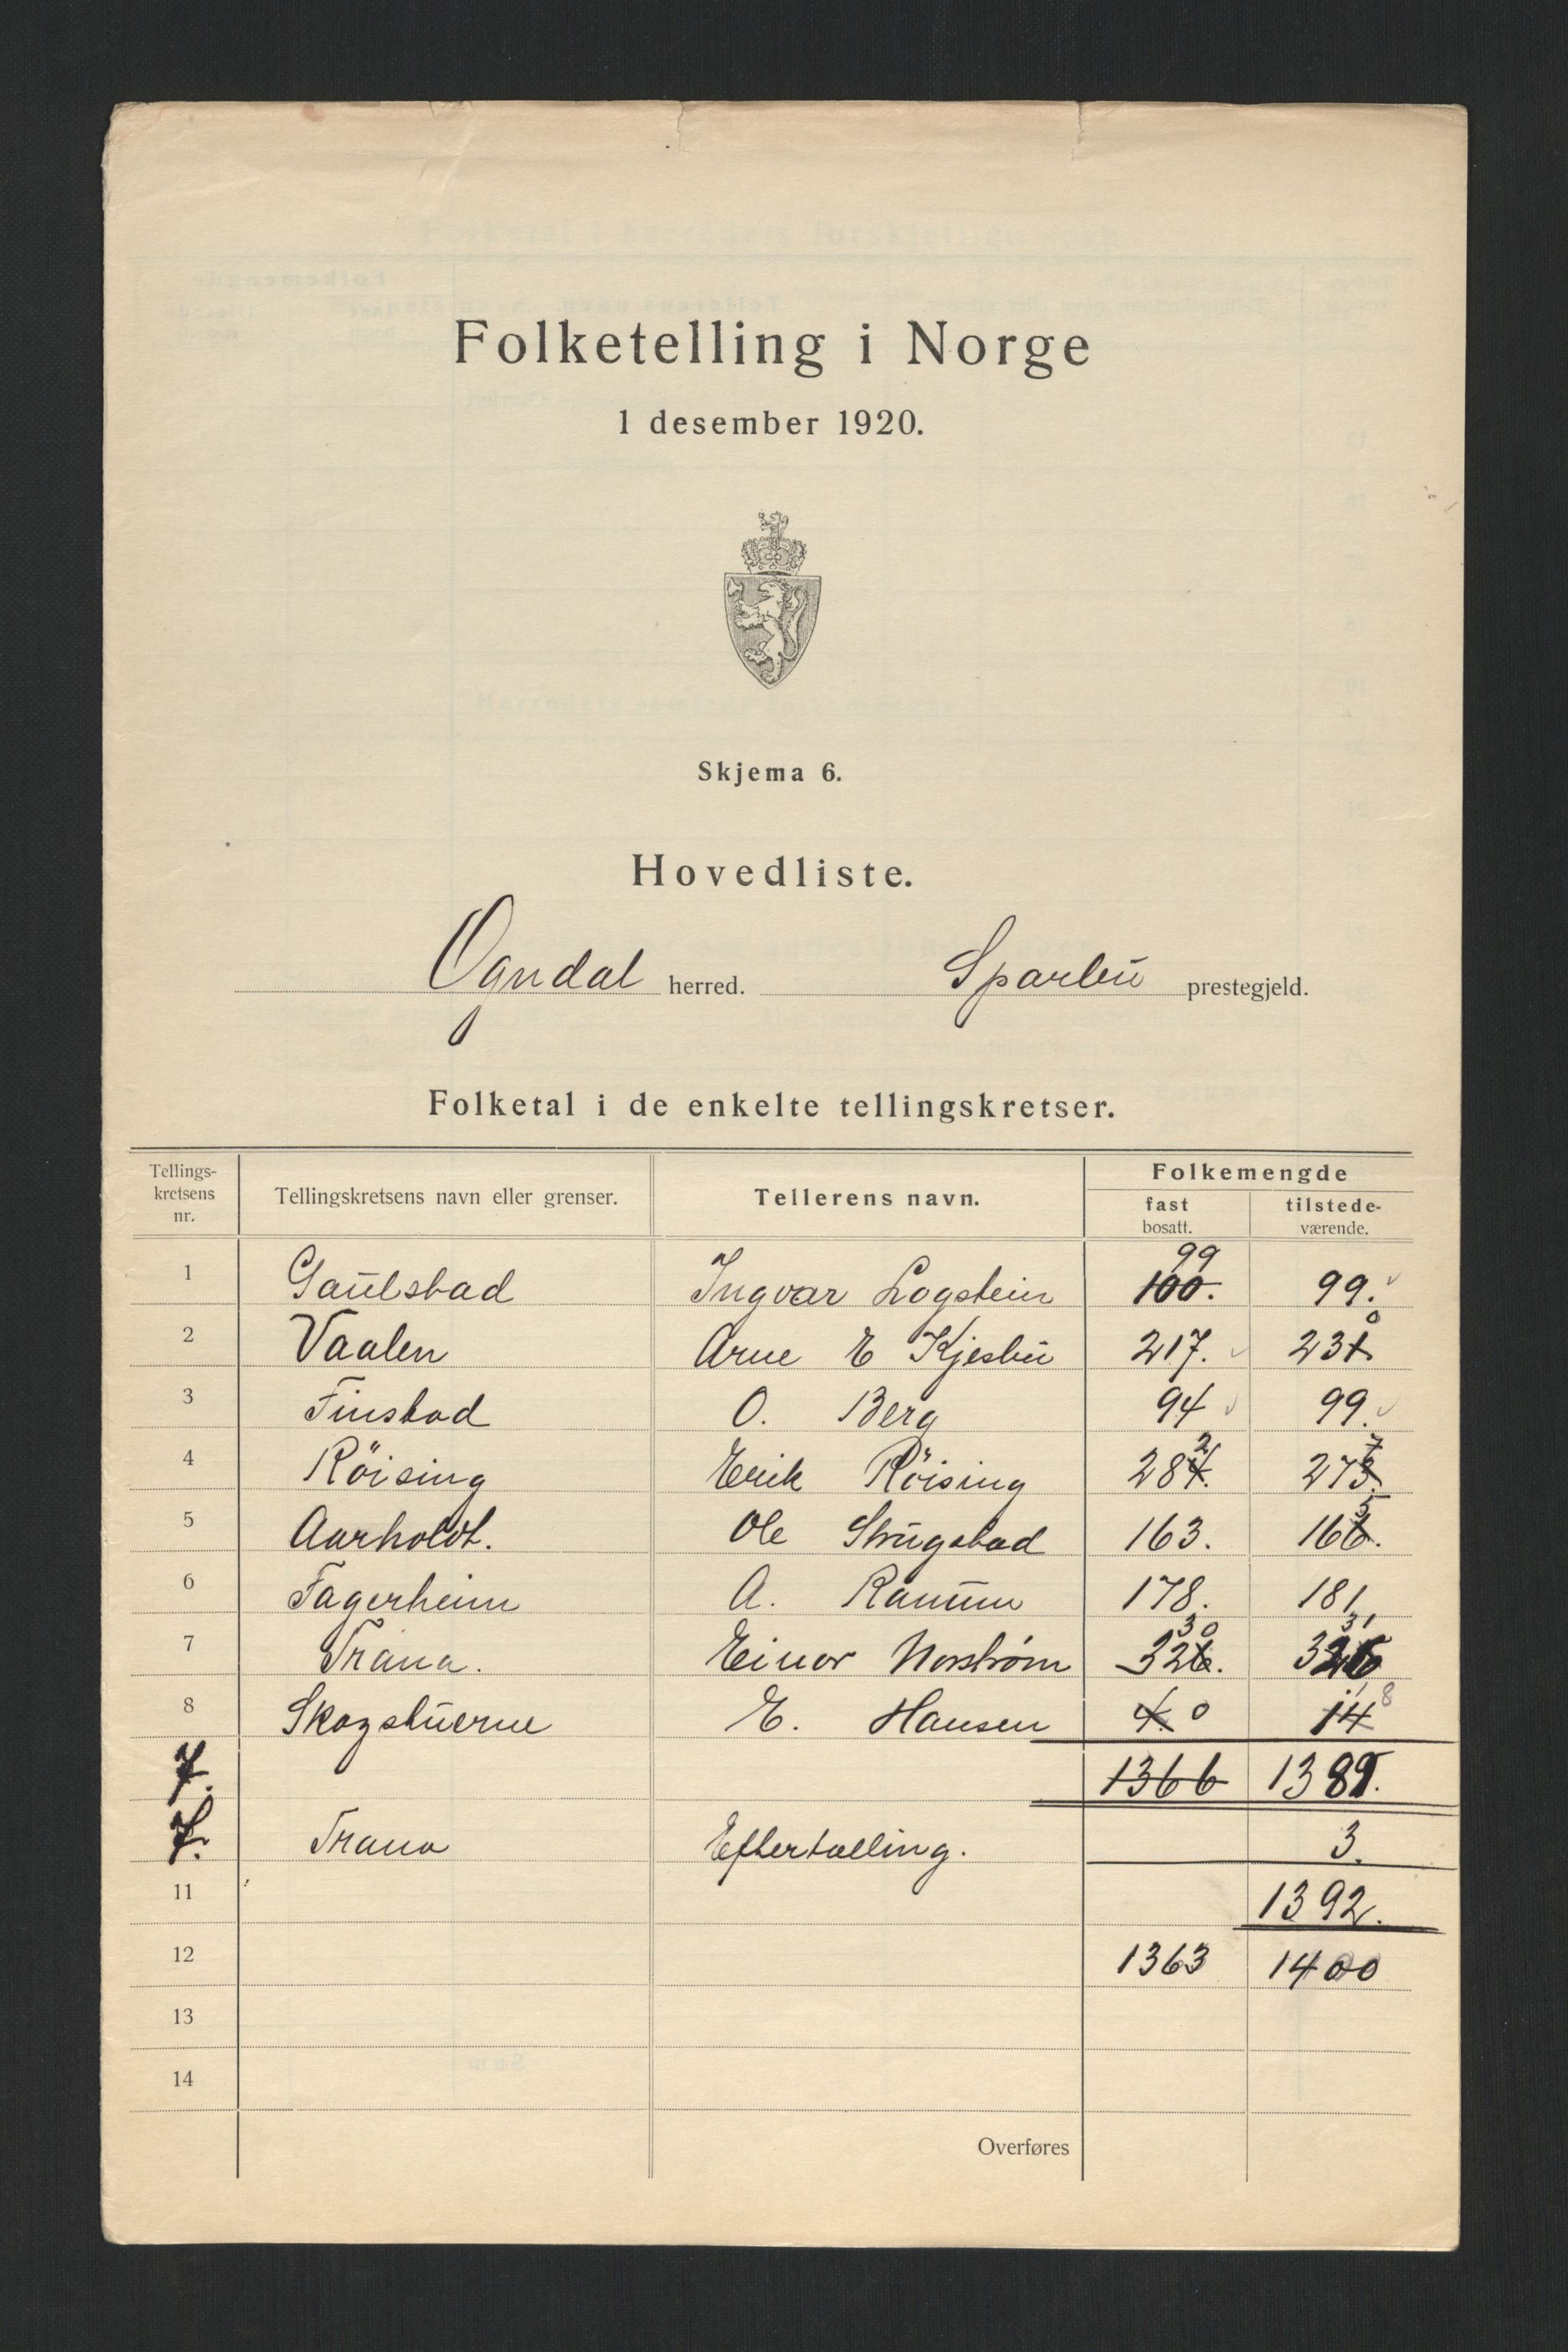 Folketelling i Norge
1 desember 1920.
Skjema 6.
Hovedliste.
Ogndal herred. Sparbu prestegjeld.
Folketal i de enkelte tellingskretser.
Tellings-
kretsens
nr.
Tellingskretsens navn eller grenser.
Tellerens navn.
Folkemengde
fast
bosatt.
tilstede-
værende.
99
1 Gaulstad Ingvar Logstein 100. 99.
0
2 Vaalen Arne E Kjesbu 217. 231
3 Finstad O. Berg 94 99.
2 7
4 Röising Erik Röising 284. 273.
5
5 Aarholdt. Ole Skrugstad 163. 166.
6 Fagerheim A. Ranum 178. 181
30 31
7 Trana. Einar Norstrøm 326. 326
8 Skogstuerne E. Hansen 4. 0 14 8
7. 1366 1389.
7. Trana Eftertælling. 3.
11 1392.
12 1363 1400
13
14
Overføres